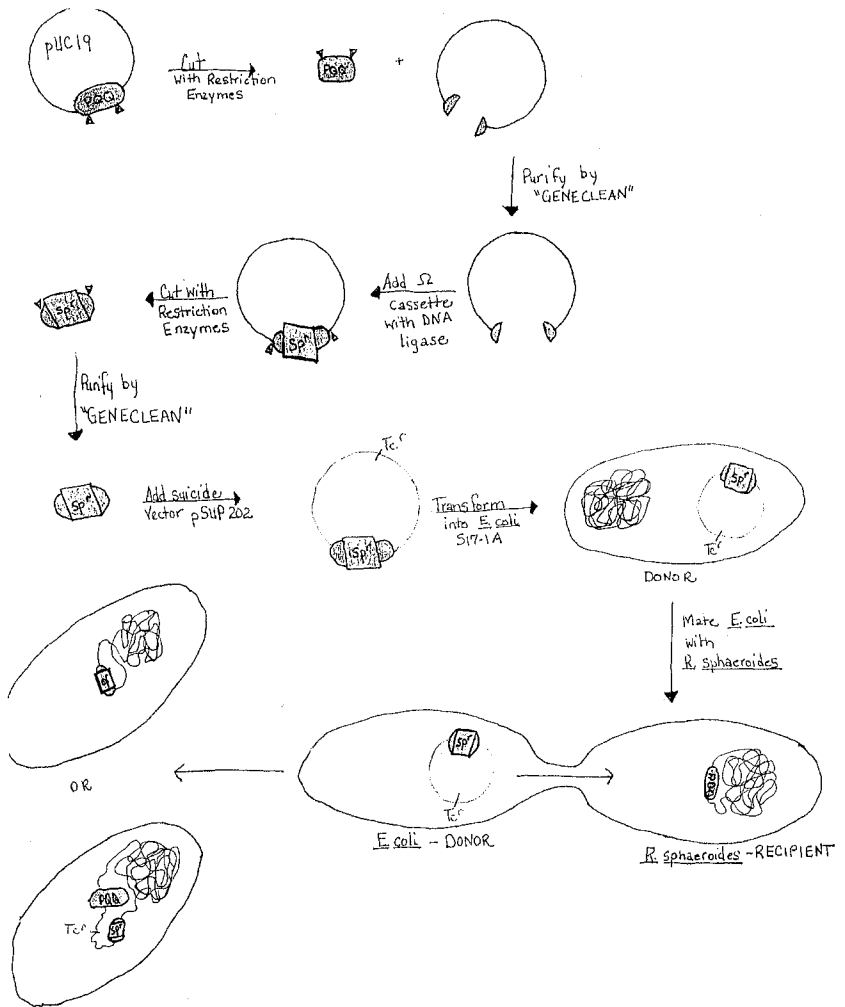 pUC19
PQQ
Cut
with Restriction
Enzymes
PQQ
+
Purify by
"GENECLEAN"
Add Ω
cassette
with DNA
ligase
Spʳ
Cut with
Restriction
Enzymes
Spʳ
Purify by
"GENECLEAN"
Spʳ
Add suicide
vector pSUP202
Tcʳ
Spʳ
Transform
into E. coli
S17-1A
Spʳ
Tcʳ
DONOR
Mate E. coli
with
R. sphaeroides
Spʳ
Tcʳ
E. coli - DONOR
PQQ
R. sphaeroides - RECIPIENT
OR
PQQ
Tcʳ
Spʳ